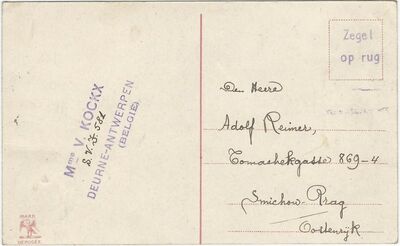 Mme V. KOCKX
S.V.I. 581
DEURNE-ANTWERPEN
(BELGIE)
Zegel
op rug
Den Heere
Adolf Reimer,
Tomashekgasse 869-4
Smichow-Prag
Oostenrijk
MARK
DEPOSEE